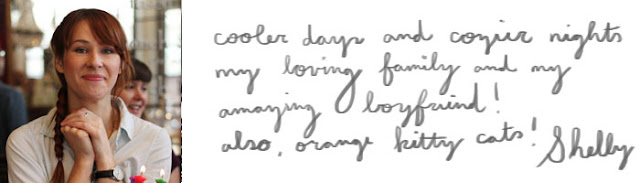 cooler days and cozier nights
my loving family and my
amazing boyfriend!
also, orange kitty cats! Shelby